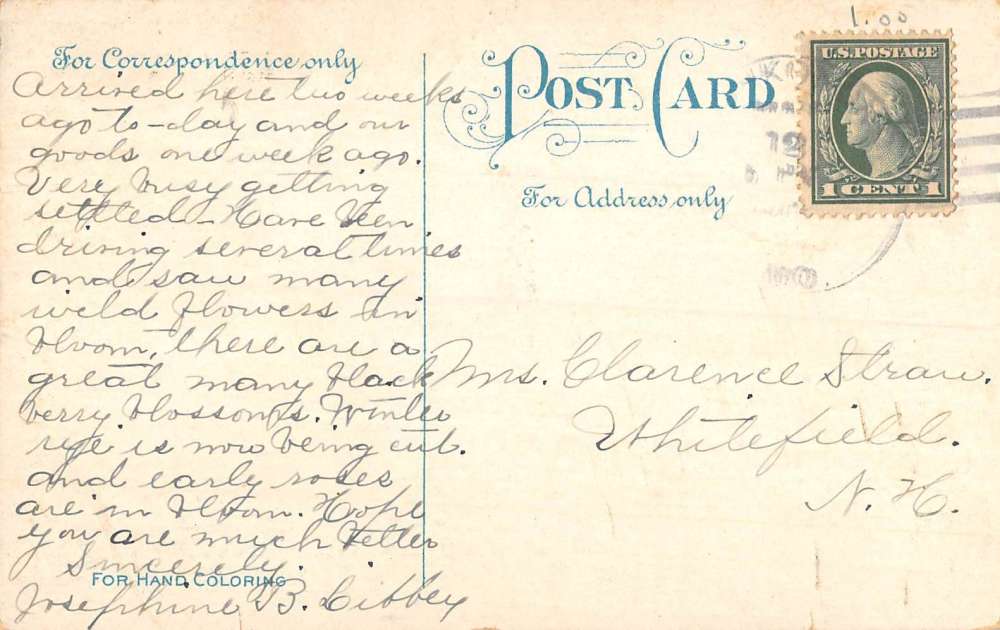 1.00
For Correspondence only
POST CARD
U.S. POSTAGE
1 CENT 1
For Address only
Arrived here two weeks
ago to-day and our
goods one week ago.
Very busy getting
settled - Have been
driving several times
and saw many
wild flowers in
bloom, there are a
great many black
berry blossoms. Winter
rye is now being cut.
and early roses
are in bloom. Hope
you are much better
Sincerely.
FOR HAND COLORING
Josephine B. Libbey
Mrs. Clarence Straw.
Whitefield.
N. H.